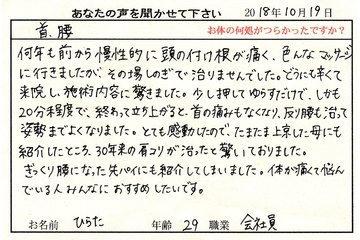 あなたの声を聞かせて下さい 2018年10月19日
お体の何処がつらかったですか?
首. 腰
何年も前から慢性的に頭の付け根が痛く、色んなマッサージ
に行きましたが、その場しのぎで治りませんでした。どうにも辛くて
来院し、施術内容に驚きました。少し押してゆらすだけで、しかも
20分程度で、終わって立ち上がると、首の痛みもなくなり、反り腰も治って
姿勢までよくなりました。とても感動したので、たまたま上京した母にも
紹介したところ、30年来の肩コリが治ったと驚いておりました。
ぎっくり腰になった先パイにも紹介してしまいました。体が痛くて悩ん
でいる人みんなにおすすめしたいです。
お名前 ひらた 年齢 29 職業 会社員